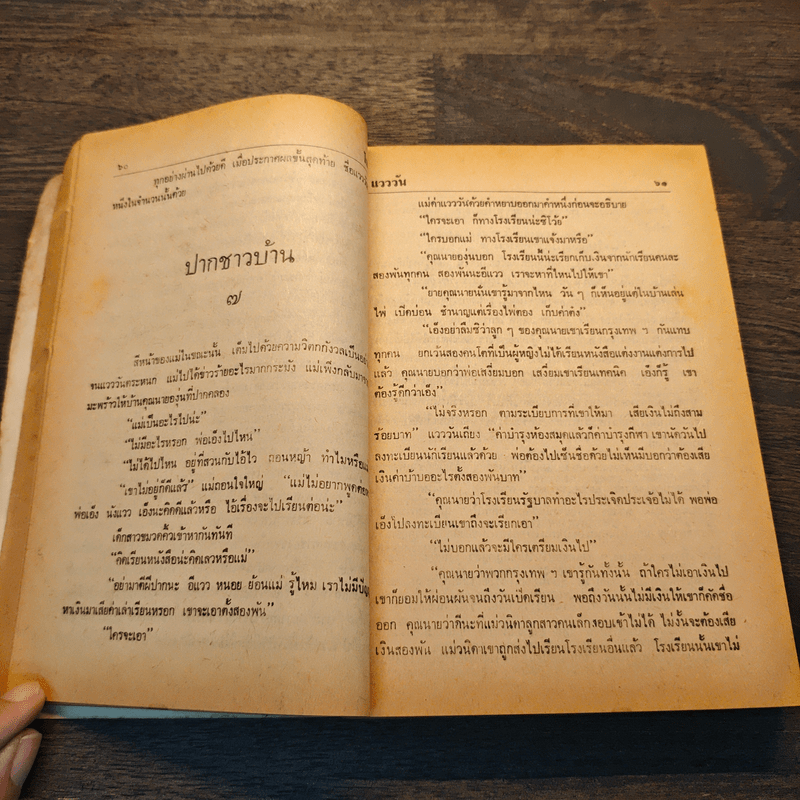 ๖๐
ทุกอย่างผ่านไปด้วยดี เมื่อประกาศผลขั้นสุดท้าย ชื่อแวว
หนึ่งในจำนวนนั้นด้วย
ปากชาวบ้าน
๗
สีหน้าของแม่ในขณะนั้น เต็มไปด้วยความวิตกกังวลเป็น
จนแวววันตระหนก แม่ไปได้ข่าวร้ายอะไรมากระมัง แม่เพิ่งกลับมา
มะพร้าวให้บ้านคุณนายองุ่นที่ปากคลอง
“แม่เป็นอะไรไปน่ะ”
“ไม่มีอะไรหรอก พ่อเอ็งไปไหน”
“ไม่ได้ไปไหน อยู่ที่สวนกับไอ้ไว ถอนหญ้า ทำไมหรือแม่
“เขาไม่อยู่ก็ดีแล้ว” แม่ถอนใจใหญ่ “แม่ไม่อยากพูดต่อ
พ่อเอ็ง นังแวว เอ็งน่ะคิดดีแล้วหรือ ไอ้เรื่องจะไปเรียนต่อน่ะ”
เด็กสาวขมวดคิ้วเข้าหากันทันที
“คิดเรียนหนังสือน่ะคิดเลวหรือแม่”
“อย่ามาดีฝีปากนะ อีแวว หนอย ย้อนแม่ รู้ไหม เราไม่มี
หาเงินมาเสียค่าเล่าเรียนหรอก เขาจะเอาตั้งสองพัน”
“ใครจะเอา”
แวววัน ๖๑
แม่ด่าแวววันด้วยคำหยาบออกมาคำหนึ่งก่อนจะอธิบาย
“ใครจะเอา ก็ทางโรงเรียนน่ะซิโว้ย”
“ใครบอกแม่ ทางโรงเรียนเขาแจ้งมาหรือ”
“คุณนายองุ่นบอก โรงเรียนนี้น่ะเรียกเก็บเงินจากนักเรียนคนละ
สองพันทุกคน สองพันนะอีแวว เราจะหาที่ไหนไปให้เขา”
“ยายคุณนายนั่นเขารู้มาจากไหน วัน ๆ ก็เห็นอยู่แต่ในบ้านเล่น
ไพ่ เปิดบ่อน ชำนาญแต่เรื่องไพ่ตอง เก็บค่าต๋ง”
“เอ็งอย่าลืมซิว่าลูก ๆ ของคุณนายเขาเรียนกรุงเทพ ฯ กันแทบ
ทุกคน ยกเว้นสองคนโตที่เป็นผู้หญิงไม่ได้เรียนหนังสือแต่งงานแต่งการไป
แล้ว คุณนายบอกว่าพ่อเสงี่ยมบอก เสงี่ยมเขาเรียนเทคนิค เอ็งก็รู้ เขา
ต้องรู้ดีกว่าเอ็ง”
“ไม่จริงหรอก ตามระเบียบการที่เขาให้มา เสียเงินไม่ถึงสาม
ร้อยบาท” แวววันเถียง “ค่าบำรุงห้องสมุดแล้วก็ค่าบำรุงกีฬา เขานัดวันไป
ลงทะเบียนนักเรียนแล้วด้วย พ่อต้องไปเซ็นชื่อด้วยไม่เห็นมีบอกว่าต้องเสีย
เงินค่าบ้าบออะไรตั้งสองพันบาท”
“คุณนายว่าโรงเรียนรัฐบาลทำอะไรประเจิดประเจ้อไม่ได้ พอพ่อ
เอ็งไปลงทะเบียนเขาถึงจะเรียกเอา”
“ไม่บอกแล้วจะมีใครเตรียมเงินไป”
“คุณนายว่าพวกกรุงเทพ ฯ เขารู้กันทั้งนั้น ถ้าใครไม่เอาเงินไป
เขาก็ยอมให้ผ่อนผันจนถึงวันเปิดเรียน พอถึงวันนั้นไม่มีเงินให้เขาก็คัดชื่อ
ออก คุณนายว่าดีนะที่แม่วนิดาลูกสาวคนเล็กสอบเข้าไม่ได้ ไม่งั้นจะต้องเสีย
เงินสองพัน แม่วนิดาเขาถูกส่งไปเรียนโรงเรียนอื่นแล้ว โรงเรียนนั้นเขาไม่